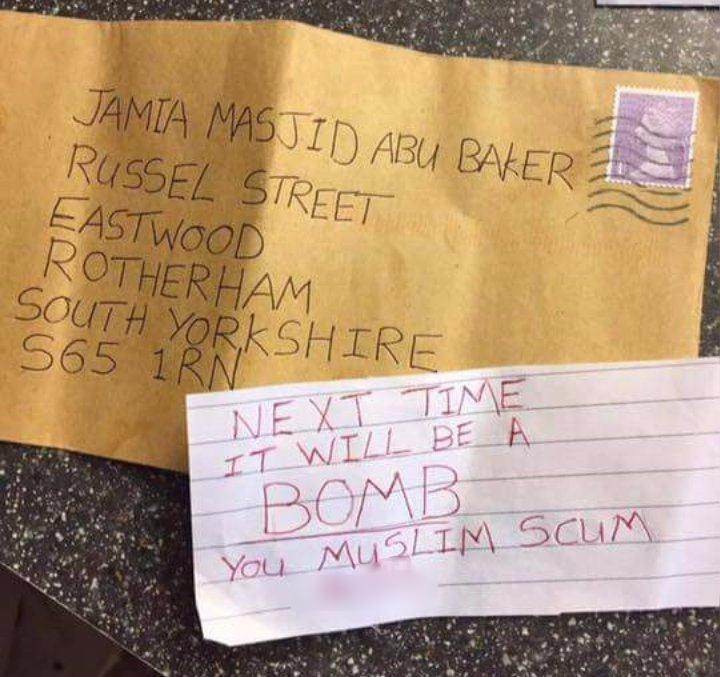 JAMIA MASJID ABU BAKER
RUSSEL STREET
EASTWOOD
ROTHERHAM
SOUTH YORKSHIRE
S65 1RN
NEXT TIME
IT WILL BE A
BOMB
YOU MUSLIM SCUM